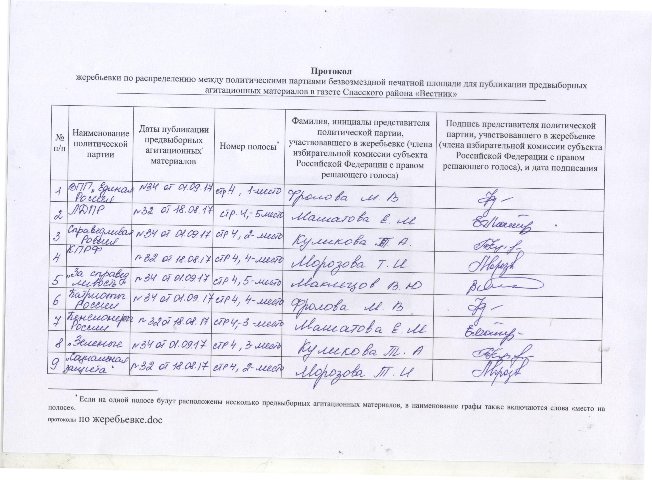 Протокол
жеребьевки по распределению между политическими партиями безвозмездной печатной площади для публикации предвыборных
агитационных материалов в газете Спасского района «Вестник»
№ п/п
Наименование политической партии
Даты публикации предвыборных агитационных материалов
Номер полосы*
Фамилия, инициалы представителя политической партии, участвовавшего в жеребьевке (члена избирательной комиссии субъекта Российской Федерации с правом решающего голоса)
Подпись представителя политической партии, участвовавшего в жеребьевке (члена избирательной комиссии субъекта Российской Федерации с правом решающего голоса), и дата подписания
1 ВПП „Единая Россия №34 от 01.09.17 стр 4, 1-место Фролова М В
2 ЛДПР №32 от 18.08.17 стр. 4, 5 место Машатова Е М
3 Справедливая Россия №34 от 01.09.17 стр 4, 2-место Куликова Т А.
4 КПРФ от 18.08.17 стр 4, 4-место Морозова Т. И
5 „За справедливость" №34 от 01.09.17 стр 4, 5-место В Ю
6 Патриоты России №34 от 01.09.17 стр 4, 4-место Фролова М В
7 Пенсионеры России №32 от 18.08.17 стр 4, 3 место Машатова Е М
8 „Зеленые №34 от 01.09.17 стр 4, 3 место Куликова Т. А
9 защита" №32 от 18.08.17 стр 4, 2-место Морозова Т. И
* Если на одной полосе будут расположены несколько предвыборных агитационных материалов, в наименование графы также включаются слова «место на
полосе».
протоколы по жеребьевке.doc